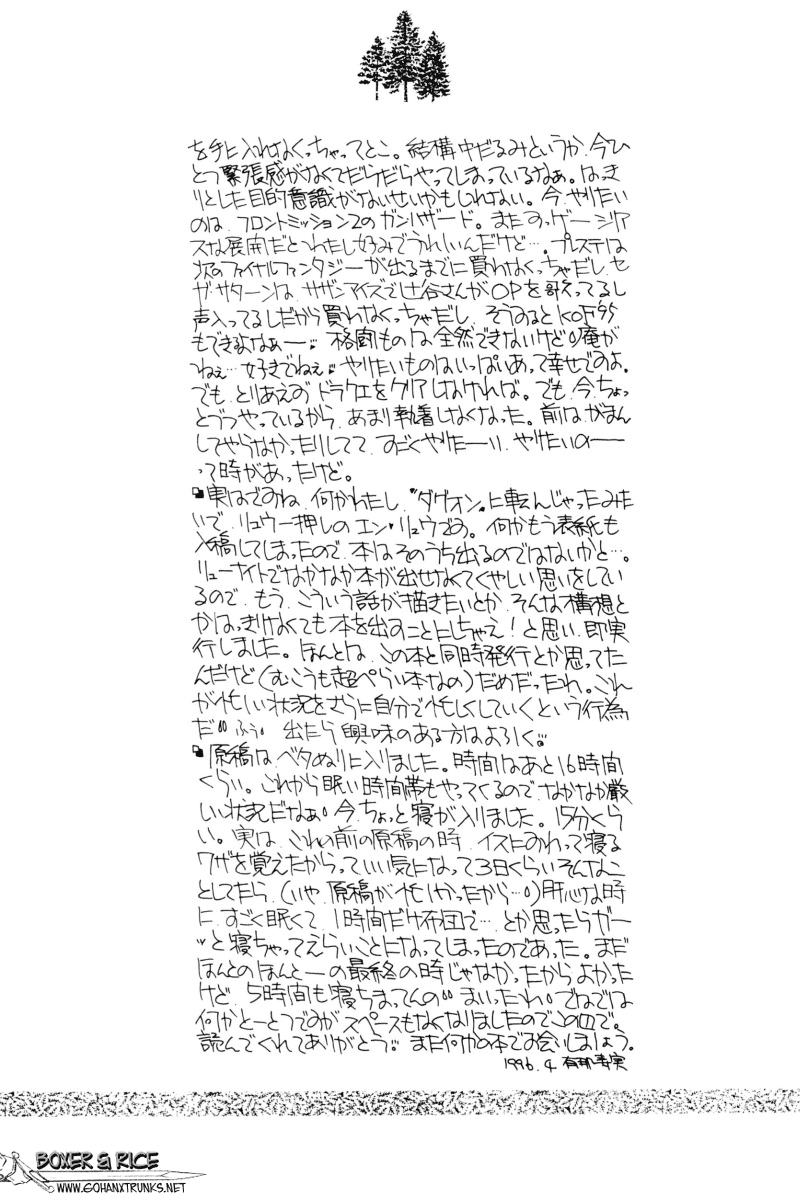 を手に入れなくっちゃってとこ。結構中だるみというか、今ひ
とつ緊張感がなくてだらだらやってしまっているなぁ。はっき
りとした目的意識がないせいかもしれない。今、やりたい
のは、フロントミッション2のガンハザード。またすっげージリア
スな展開だとわたし好みでうれしいんだけど…。プレステは
次のファイナルファンタジーが出るまでに買わなくっちゃだし、セ
ガ・サターンは、サザンアイズで辻谷さんがOPを歌ってるし
声入ってるしだから買わなくっちゃだし、そうするとKOF'95
もできるよなぁー。格闘ものは全然できないけど 庵が
ねぇ…好きでねぇ。やりたいものはいっぱいあって幸せですのよ。
でも、とりあえずドラクエをクリアしなければ。でも、今、ちょっ
とづつやっているから、あまり執着しなくなった。前は、がまん
してやらなかったりしてて、すごくやりたーい、やりたいのー
って時があったけど。
実はですね、何かわたし、"ダグオン"に転んじゃったみた
いで、リュウ一押しのエン・リュウです。何かもう表紙も
入稿してしまったので、本はそのうち出るのではないかと…。
リューナイトでなかなか本が出せなくてくやしい思いをしてい
るので、もう、こういう話が描きたいとか、そんな構想と
かはっきりなくても本を出すことにしちゃえ!と思い、即実
行しました。ほんとは、この本と同時発行とか思ってた
んだけど(むこうも超ぺらい本なの)だめだったわ。これ
が忙しい状況をさらに自分で忙しくしていくという行為
だ ふぅ 出たら興味のある方はよろしく。
原稿はベタぬりに入りました。時間はあと16時間
くらい。これから眠い時間帯もやってくるので、なかなか厳
しい状況だなぁ 今、ちょっと寝が入りました。15分くら
い。実は、これの前の原稿の時、イスにすわって寝る
ワザを覚えたからっていい気になって3日くらいそんなこ
としてたら、(いや、原稿が忙しかったから…)肝心な時
に、すごく眠くて、1時間だけ布団で…とか思ったらガー
ッと寝ちゃってえらいことになってしまったのであった。まだ
ほんとのほんとーの最終の時じゃなかったからよかった
けど、5時間も寝ちまってんの まいったわ ではでは
何かとーとつですがスペースもなくなりましたのでこの辺で。
読んでくれてありがとう。また何かの本でお会いしましょう。
1996.4
BOXER & RICE
WWW.GOHANXTRUNKS.NET